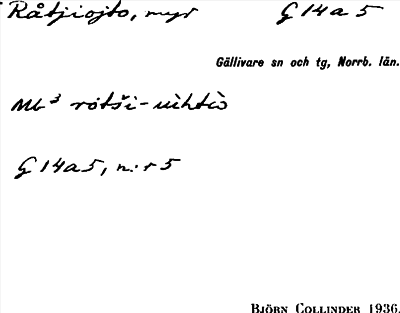 Råtjiojto, myr G 14 a 5
Gällivare sn och tg, Norrb. län.
G 14 a 5, n:r 5
BJÖRN COLLINDER 1936.